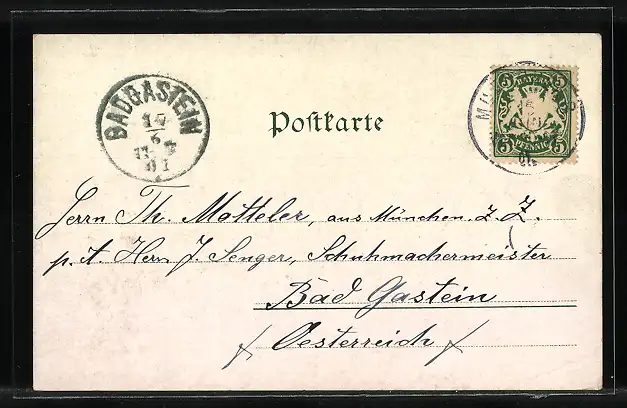 BADGASTEIN
6
01
Postkarte
5 BAYERN 5
5 PFENNIG 5
Herrn Th. Motteler, aus München z. Z.
p. A. Herrn J. Senger, Schuhmachermeister
Bad Gastein
Oesterreich